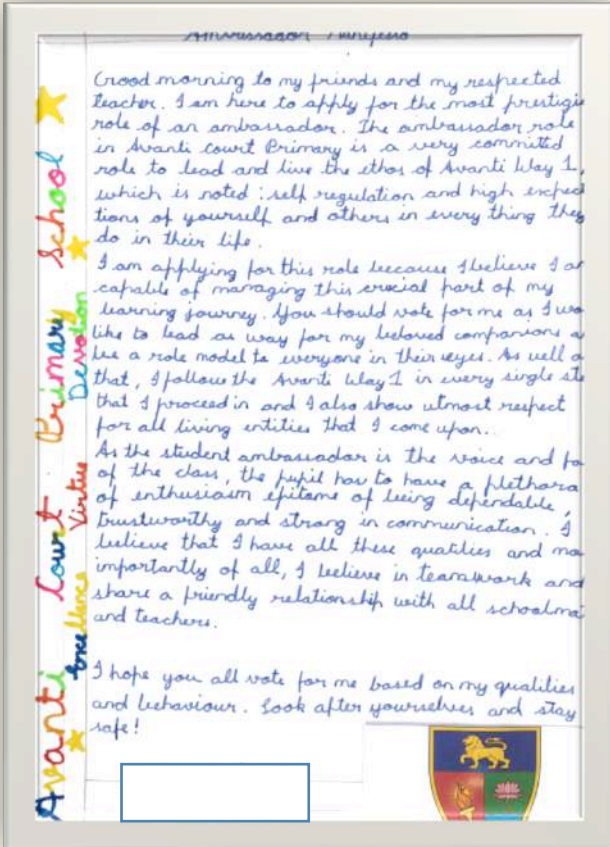 Ambassador Manifesto
Good morning to my friends and my respected
teacher. I am here to apply for the most prestigi
role of an ambassador. The ambassador role
in Avanti court Primary is a very committed
role to lead and live the ethos of Avanti Way 1,
which is noted : self regulation and high expec
tions of yourself and others in every thing they
do in their life.
I am applying for this role because I believe I a
capable of managing this crucial part of my
learning journey. You should vote for me as I wo
like to lead as way for my beloved companions a
be a role model to everyone in their eyes. As well a
that, I follow the Avanti Way 1 in every single ste
that I proceed in and I also show utmost respect
for all living entities that I come upon..
As the student ambassador is the voice and fa
of the class, the pupil has to have a plethora
of enthusiasm epitome of being dependable,
trustworthy and strong in communication. I
believe that I have all these qualities and mo
importantly of all, I believe in teamwork and
share a friendly relationship with all schoolma
and teachers.
I hope you all vote for me based on my qualities
and behaviour. Look after yourselves and stay
safe!
Avanti Court Primary School
Excellence Virtue Devotion